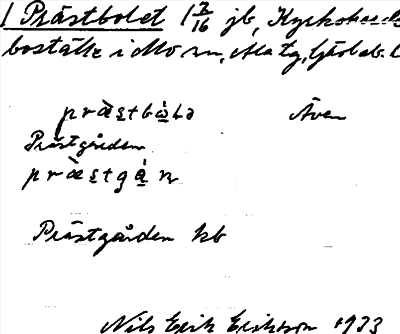 1 Prästbolet 1 7/16 jb, Kyrkoherde
boställe i Mo sn,
præstbὼlə Även
Prästgården
præstgá̱ṇ
Prästgården kb
Nils Erik Eriksson 1933